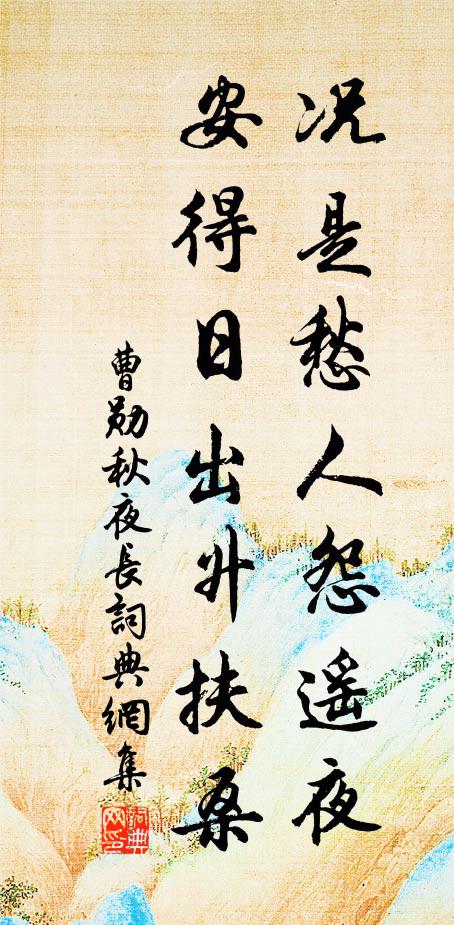 况是愁人怨遥夜
安得日出升扶桑
曹勋秋夜長詞典網集